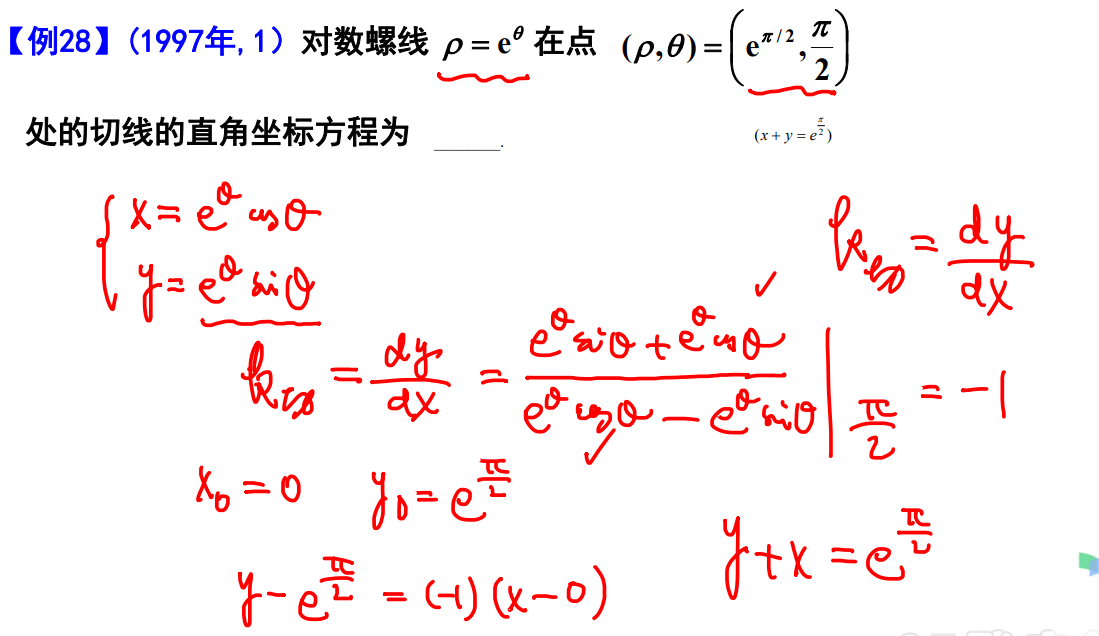 【例28】(1997年,1) 对数螺线 ρ = e^θ 在点 (ρ,θ) = (e^{π/2}, π/2)
处的切线的直角坐标方程为 ______.
(x + y = e^{π/2})
{ x = e^θ cosθ
y = e^θ sinθ
k切 = dy/dx
k切 = dy/dx = (e^θ sinθ + e^θ cosθ)/(e^θ cosθ − e^θ sinθ) | π/2 = −1
x₀ = 0 y₀ = e^{π/2}
y + x = e^{π/2}
y − e^{π/2} = (−1)(x − 0)